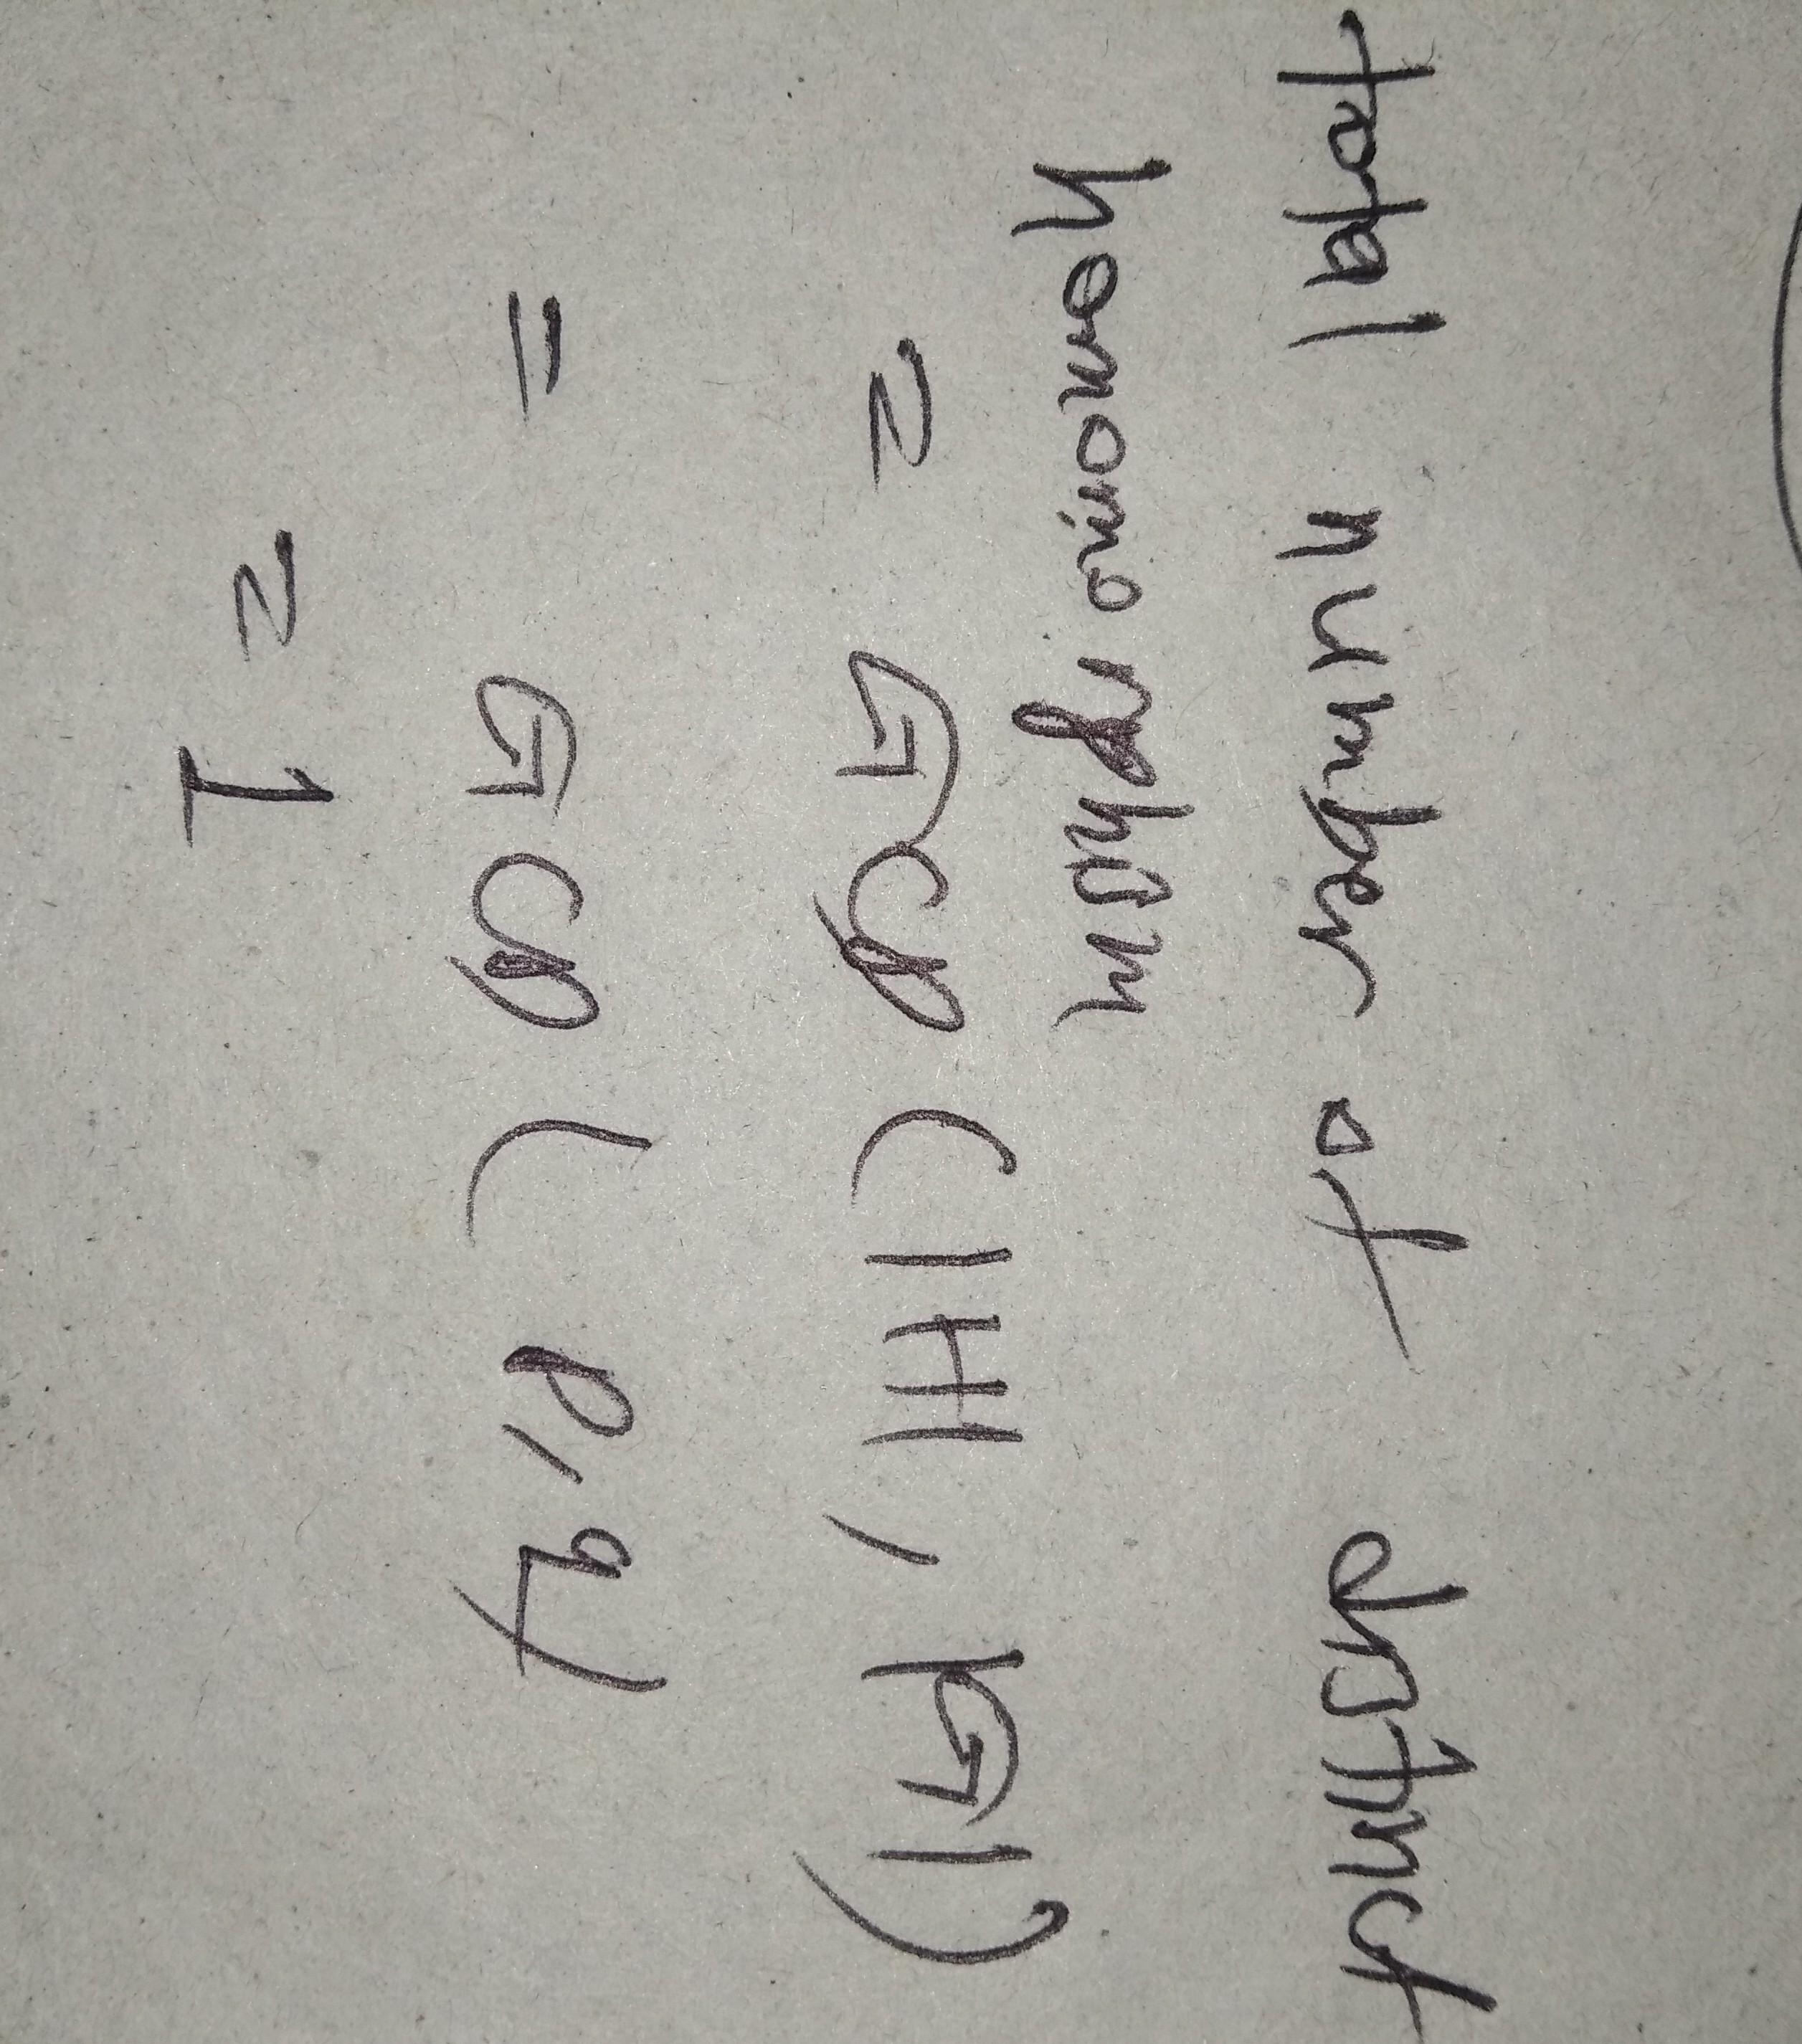 total number of distinct
homomorphism
= GCD (|H|, |G|)
= GCD ( P, q)
= 1